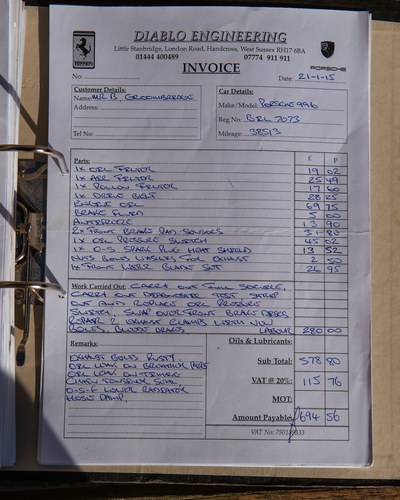 DIABLO ENGINEERING
Little Stanbridge, London Road, Handcross, West Sussex RH17 6BA
01444 400489 07774 911 911
FERRARI
PORSCHE
INVOICE
No.
Date: 21-1-15
Customer Details:
Name: MR B. GROOMBRIDGE
Address:
Tel No
Car Details:
Make/Model: PORSCHE 996
Reg No:
Mileage: 38513
Parts: £ P
1x OIL FILTER 19 02
1x AIR FILTER 25 49
1x POLLEN FILTER 17 60
1x DRIVE BELT 28 25
ENGINE OIL 69 75
BRAKE FLUID 5 00
ANTIFREEZE 13 90
2x FRONT BRAKE PAD SENSORS 31 80
1x OIL PRESSURE SWITCH 45 02
1x O-S SPARK PLUG HEAT SHIELD 13 52
NUTS BOLTS WASHERS FOR EXHAUST 2 50
1x FRONT WIPER BLADE SET 26 95
Work Carried Out: CARRY OUT FULL SERVICE,
CARRY OUT DIAGNOSTIC TEST, STRIP
OUT AND REPLACE OIL PRESSURE
SWITCH, SWAP OVER FRONT BRAKE DISCS
2 EXHAUST CLAMPS WITH NEW
BOLTS, BLEED BRAKES LABOUR 280 00
Oils & Lubricants:
Remarks:
EXHAUST BOLTS RUSTY
OIL LEAK ON BREATHER PIPE
OIL LEAK ON TIMING
CHAIN TENSIONER SEAL
O-S-F LOWER RADIATOR
HOSE DAMP.
Sub Total: 578 80
VAT @ 20%: 115 76
MOT:
Amount Payable: £694 56